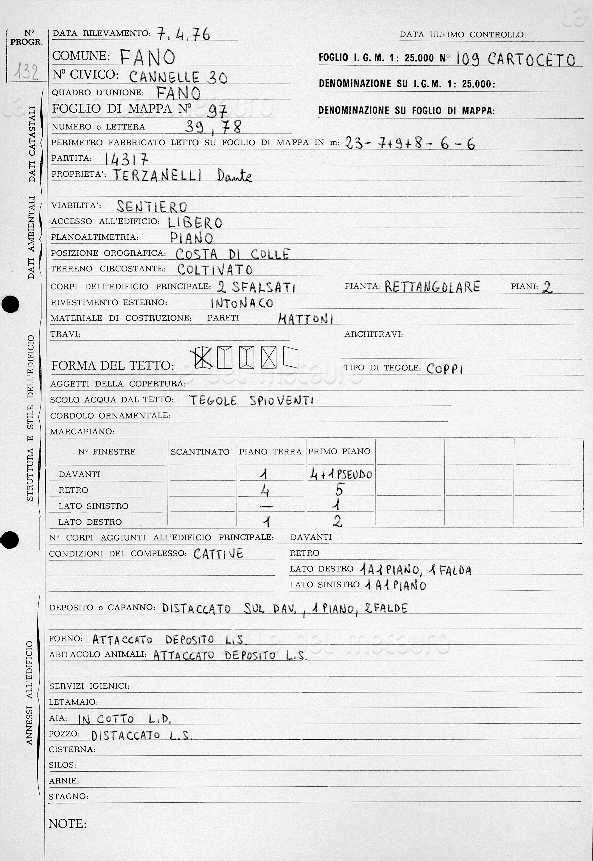 Nº PROGR. 132
DATA RILEVAMENTO: 7.4.76 DATA ULTIMO CONTROLLO
COMUNE: FANO FOGLIO I.G.M. 1: 25.000 Nº 109 CARTOCETO
Nº CIVICO: CANNELLE 30 DENOMINAZIONE SU I.G.M. 1: 25.000:
QUADRO D'UNIONE: FANO
FOGLIO DI MAPPA Nº 97 DENOMINAZIONE SU FOGLIO DI MAPPA:
NUMERO o LETTERA 39, 78
PERIMETRO FABBRICATO LETTO SU FOGLIO DI MAPPA IN m: 23-7+9+8-6-6
PARTITA: 14317
PROPRIETA': TERZANELLI Dante
DATI CATASTALI
VIABILITA': SENTIERO
ACCESSO ALL'EDIFICIO: LIBERO
PLANOALTIMETRIA: PIANO
POSIZIONE OROGRAFICA: COSTA DI COLLE
TERRENO CIRCOSTANTE: COLTIVATO
DATI AMBIENTALI
CORPI DELL'EDIFICIO PRINCIPALE: 2 SFALSATI PIANTA: RETTANGOLARE PIANI: 2
RIVESTIMENTO ESTERNO: INTONACO
MATERIALE DI COSTRUZIONE: PARETI MATTONI
TRAVI: ARCHITRAVI:
FORMA DEL TETTO: TIPO DI TEGOLE: COPPI
AGGETTI DELLA COPERTURA:
SCOLO ACQUA DAL TETTO: TEGOLE SPIOVENTI
CORDOLO ORNAMENTALE:
MARCAPIANO:
Nº FINESTRE SCANTINATO PIANO TERRA PRIMO PIANO
DAVANTI 1 4+1 PSEUDO
RETRO 4 5
LATO SINISTRO — 1
LATO DESTRO 1 2
STRUTTURA E STILE DELL'EDIFICIO
Nº CORPI AGGIUNTI ALL'EDIFICIO PRINCIPALE: DAVANTI
CONDIZIONI DEL COMPLESSO: CATTIVE RETRO
LATO DESTRO 1 A 1 PIANO, 1 FALDA
LATO SINISTRO 1 A 1 PIANO
DEPOSITO o CAPANNO: DISTACCATO SUL DAV., 1 PIANO, 2 FALDE
FORNO: ATTACCATO DEPOSITO L.S.
ABITACOLO ANIMALI: ATTACCATO DEPOSITO L.S.
SERVIZI IGIENICI:
LETAMAIO:
AIA: IN COTTO L.D.
POZZO: DISTACCATO L.S.
CISTERNA:
SILOS:
ARNIE:
STAGNO:
ANNESSI ALL'EDIFICIO
NOTE: